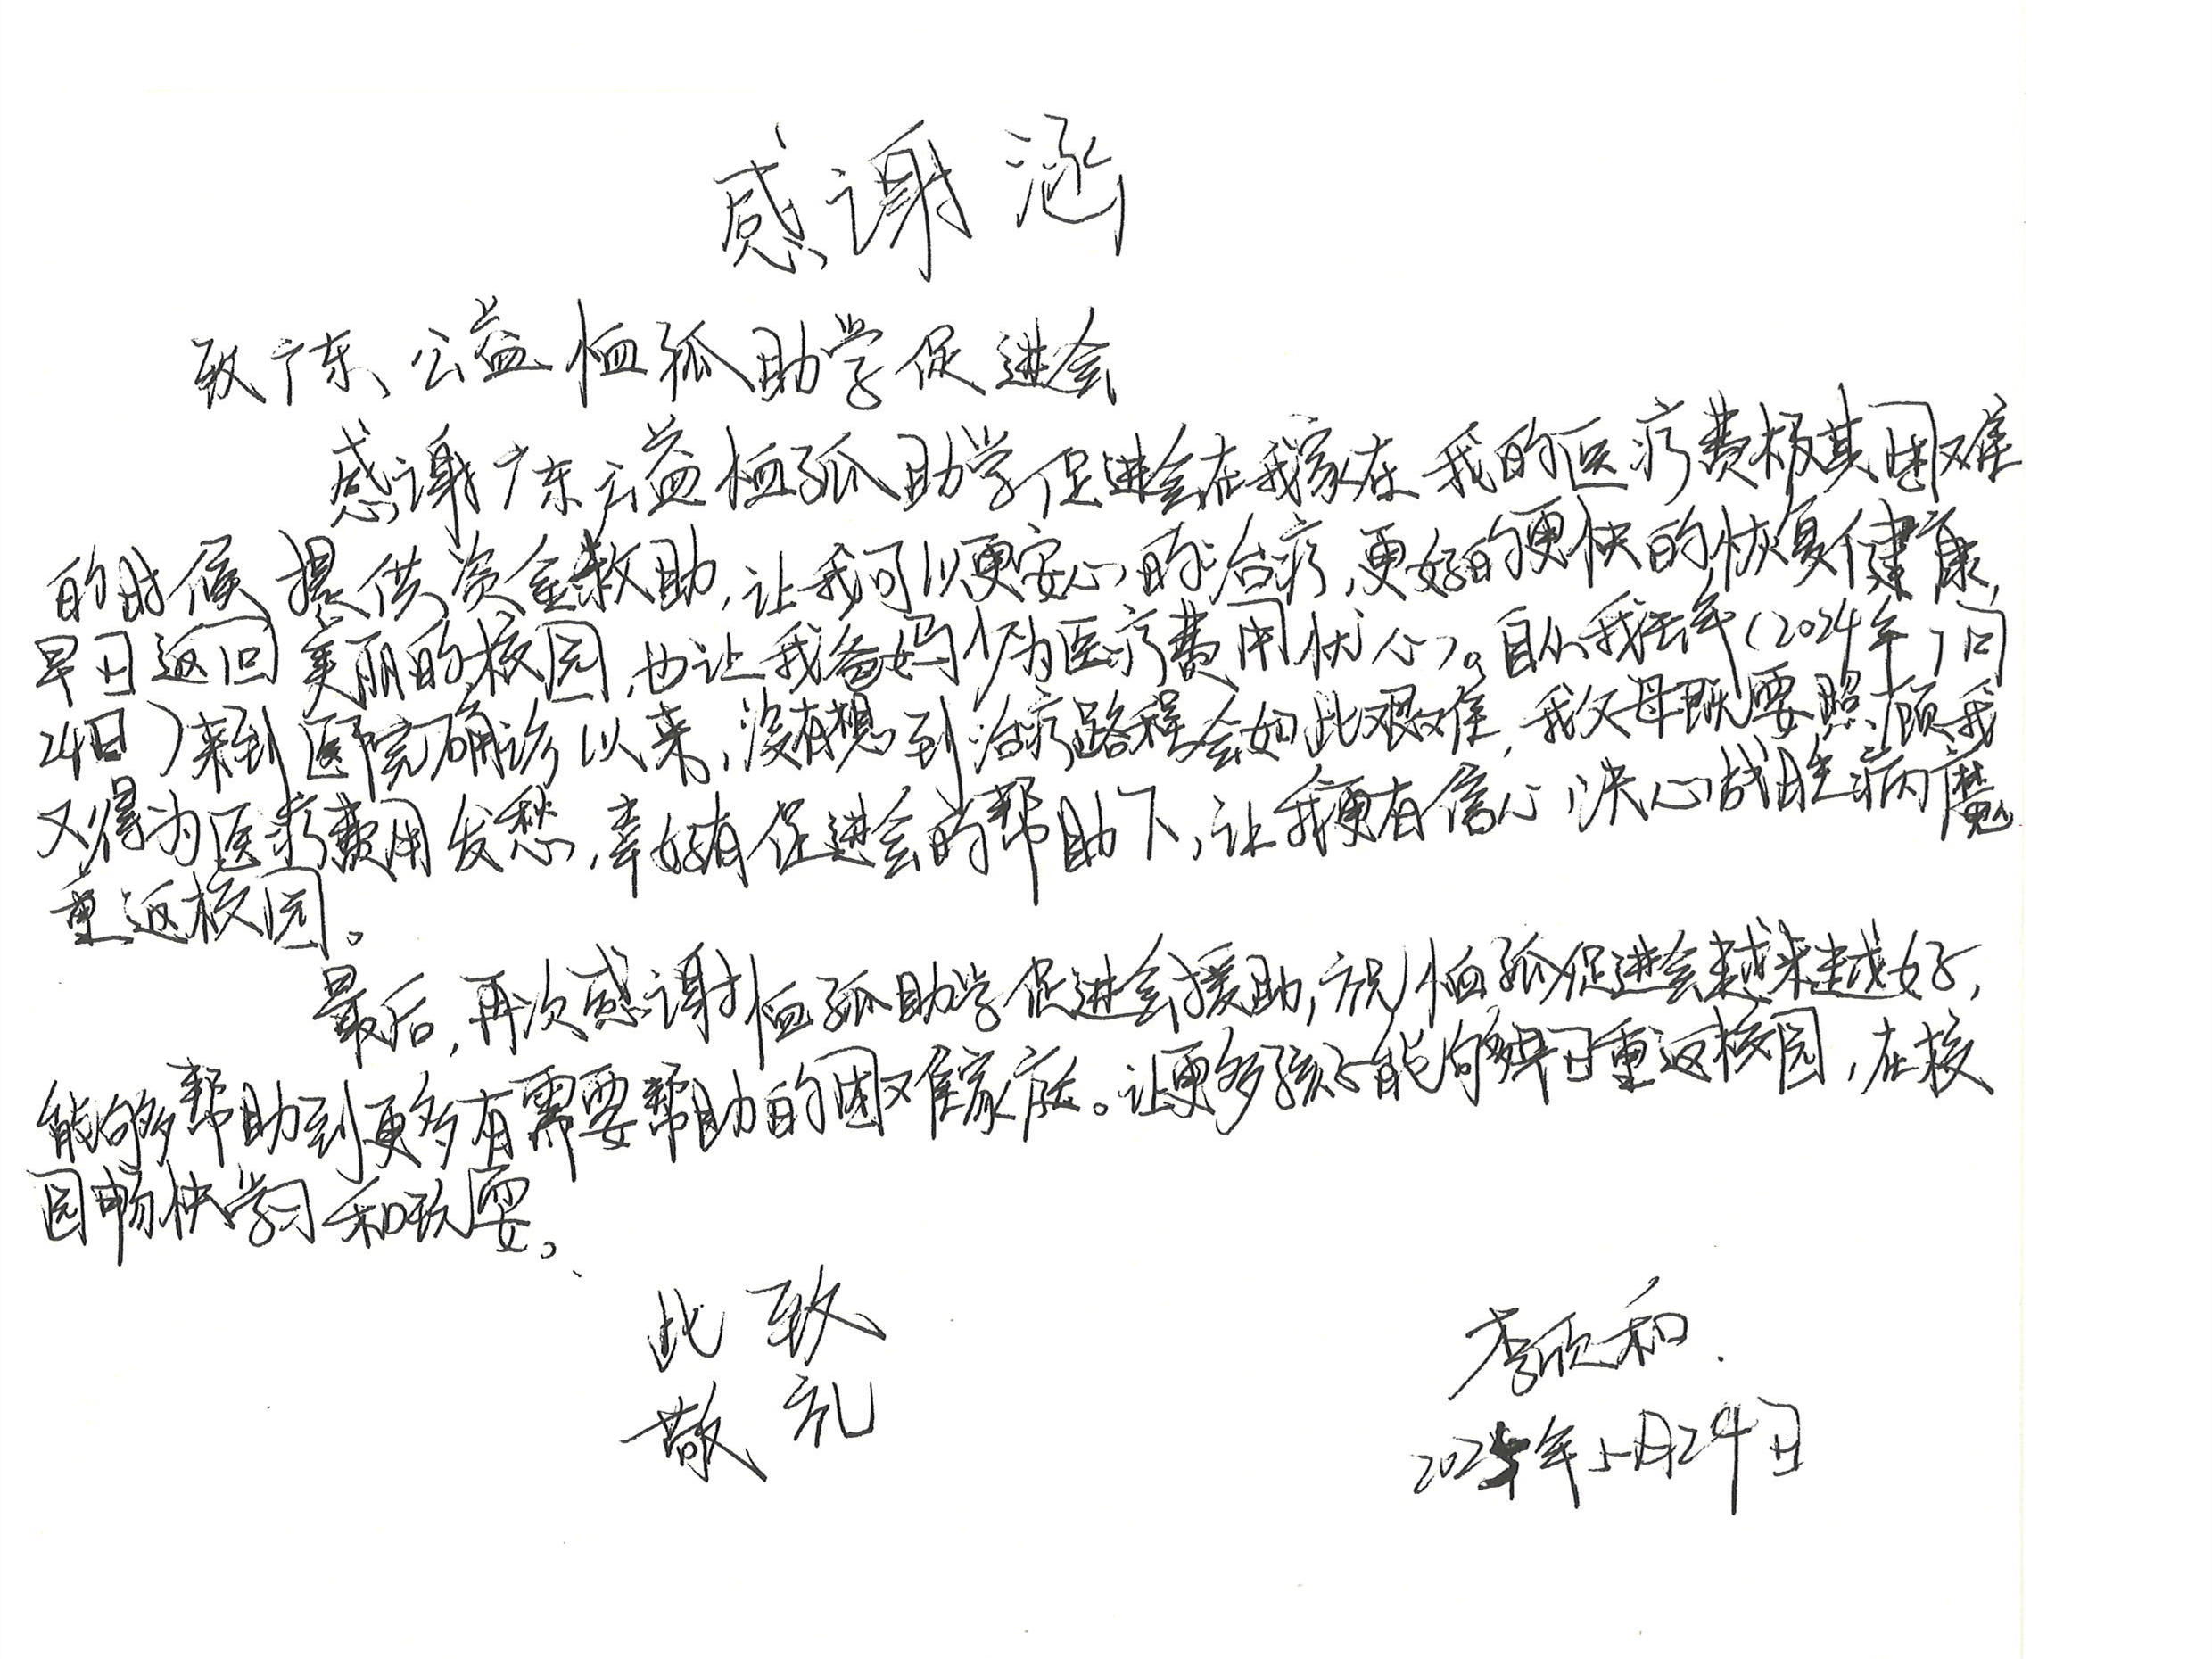 感谢涵
致广东公益恤孤助学促进会
感谢广东公益恤孤助学促进会在我家在我的医疗费极其困难
的时候提供资金救助,让我可以更安心的治疗,更好的更快的恢复健康,
早日返回美丽的校园,也让我爸妈少为医疗费用忧心。自从我去年(2024年7月
24日)来到医院确诊以来,没有想到治疗路程会如此艰难,我父母既要照顾我
又得为医疗费用发愁,幸好有促进会的帮助下,让我更有信心决心战胜病魔
重返校园。
最后,再次感谢恤孤助学促进会援助,祝恤孤促进会越来越好,
能够帮助到更多有需要帮助的困难家庭。让更多孩子能够早日重返校园,在校
园畅快学习和玩耍。
此致
敬礼
李欣和
2025年5月24日